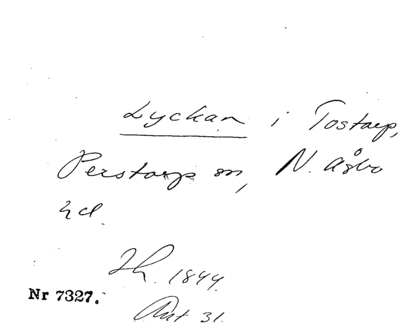 Lyckan i Tostarp,
Perstorp sn, N. Åsbo
hd.
Th. 1844.
Nr 7327.
Ant 31.